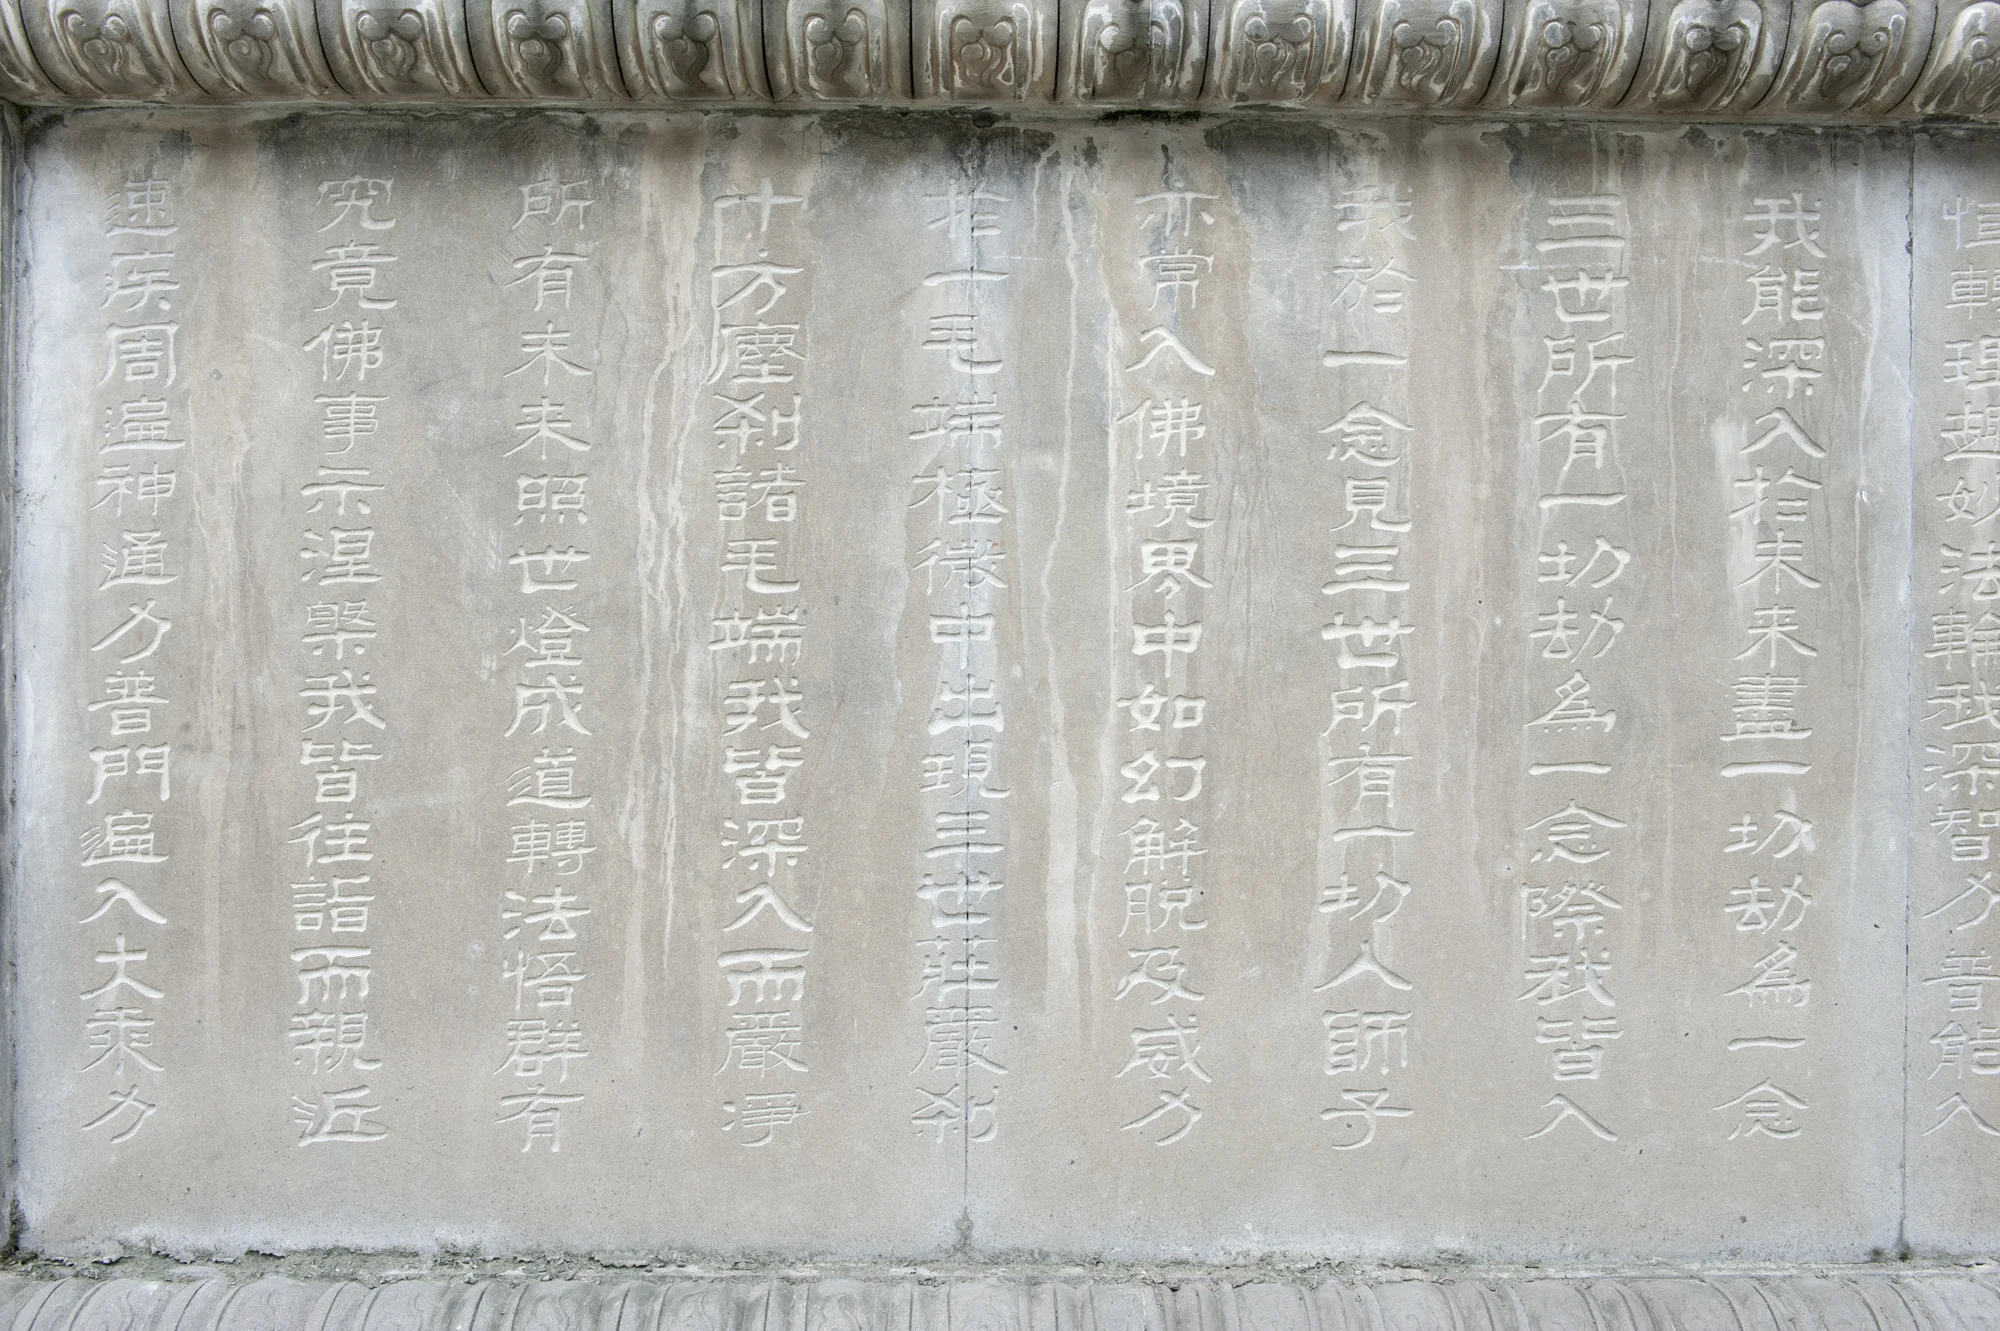 恒轉理趣妙法輪我深智力普能入
我能深入於未来盡一切劫為一念
三世所有一切劫為一念際我皆入
我於一念見三世所有一切人師子
亦常入佛境界中如幻解脱及威力
於一毛端極微中出現三世莊嚴剎
十方塵剎諸毛端我皆深入而嚴淨
所有未来照世燈成道轉法悟群有
究竟佛事示涅槃我皆往詣而親近
速疾周遍神通力普門遍入大乘力